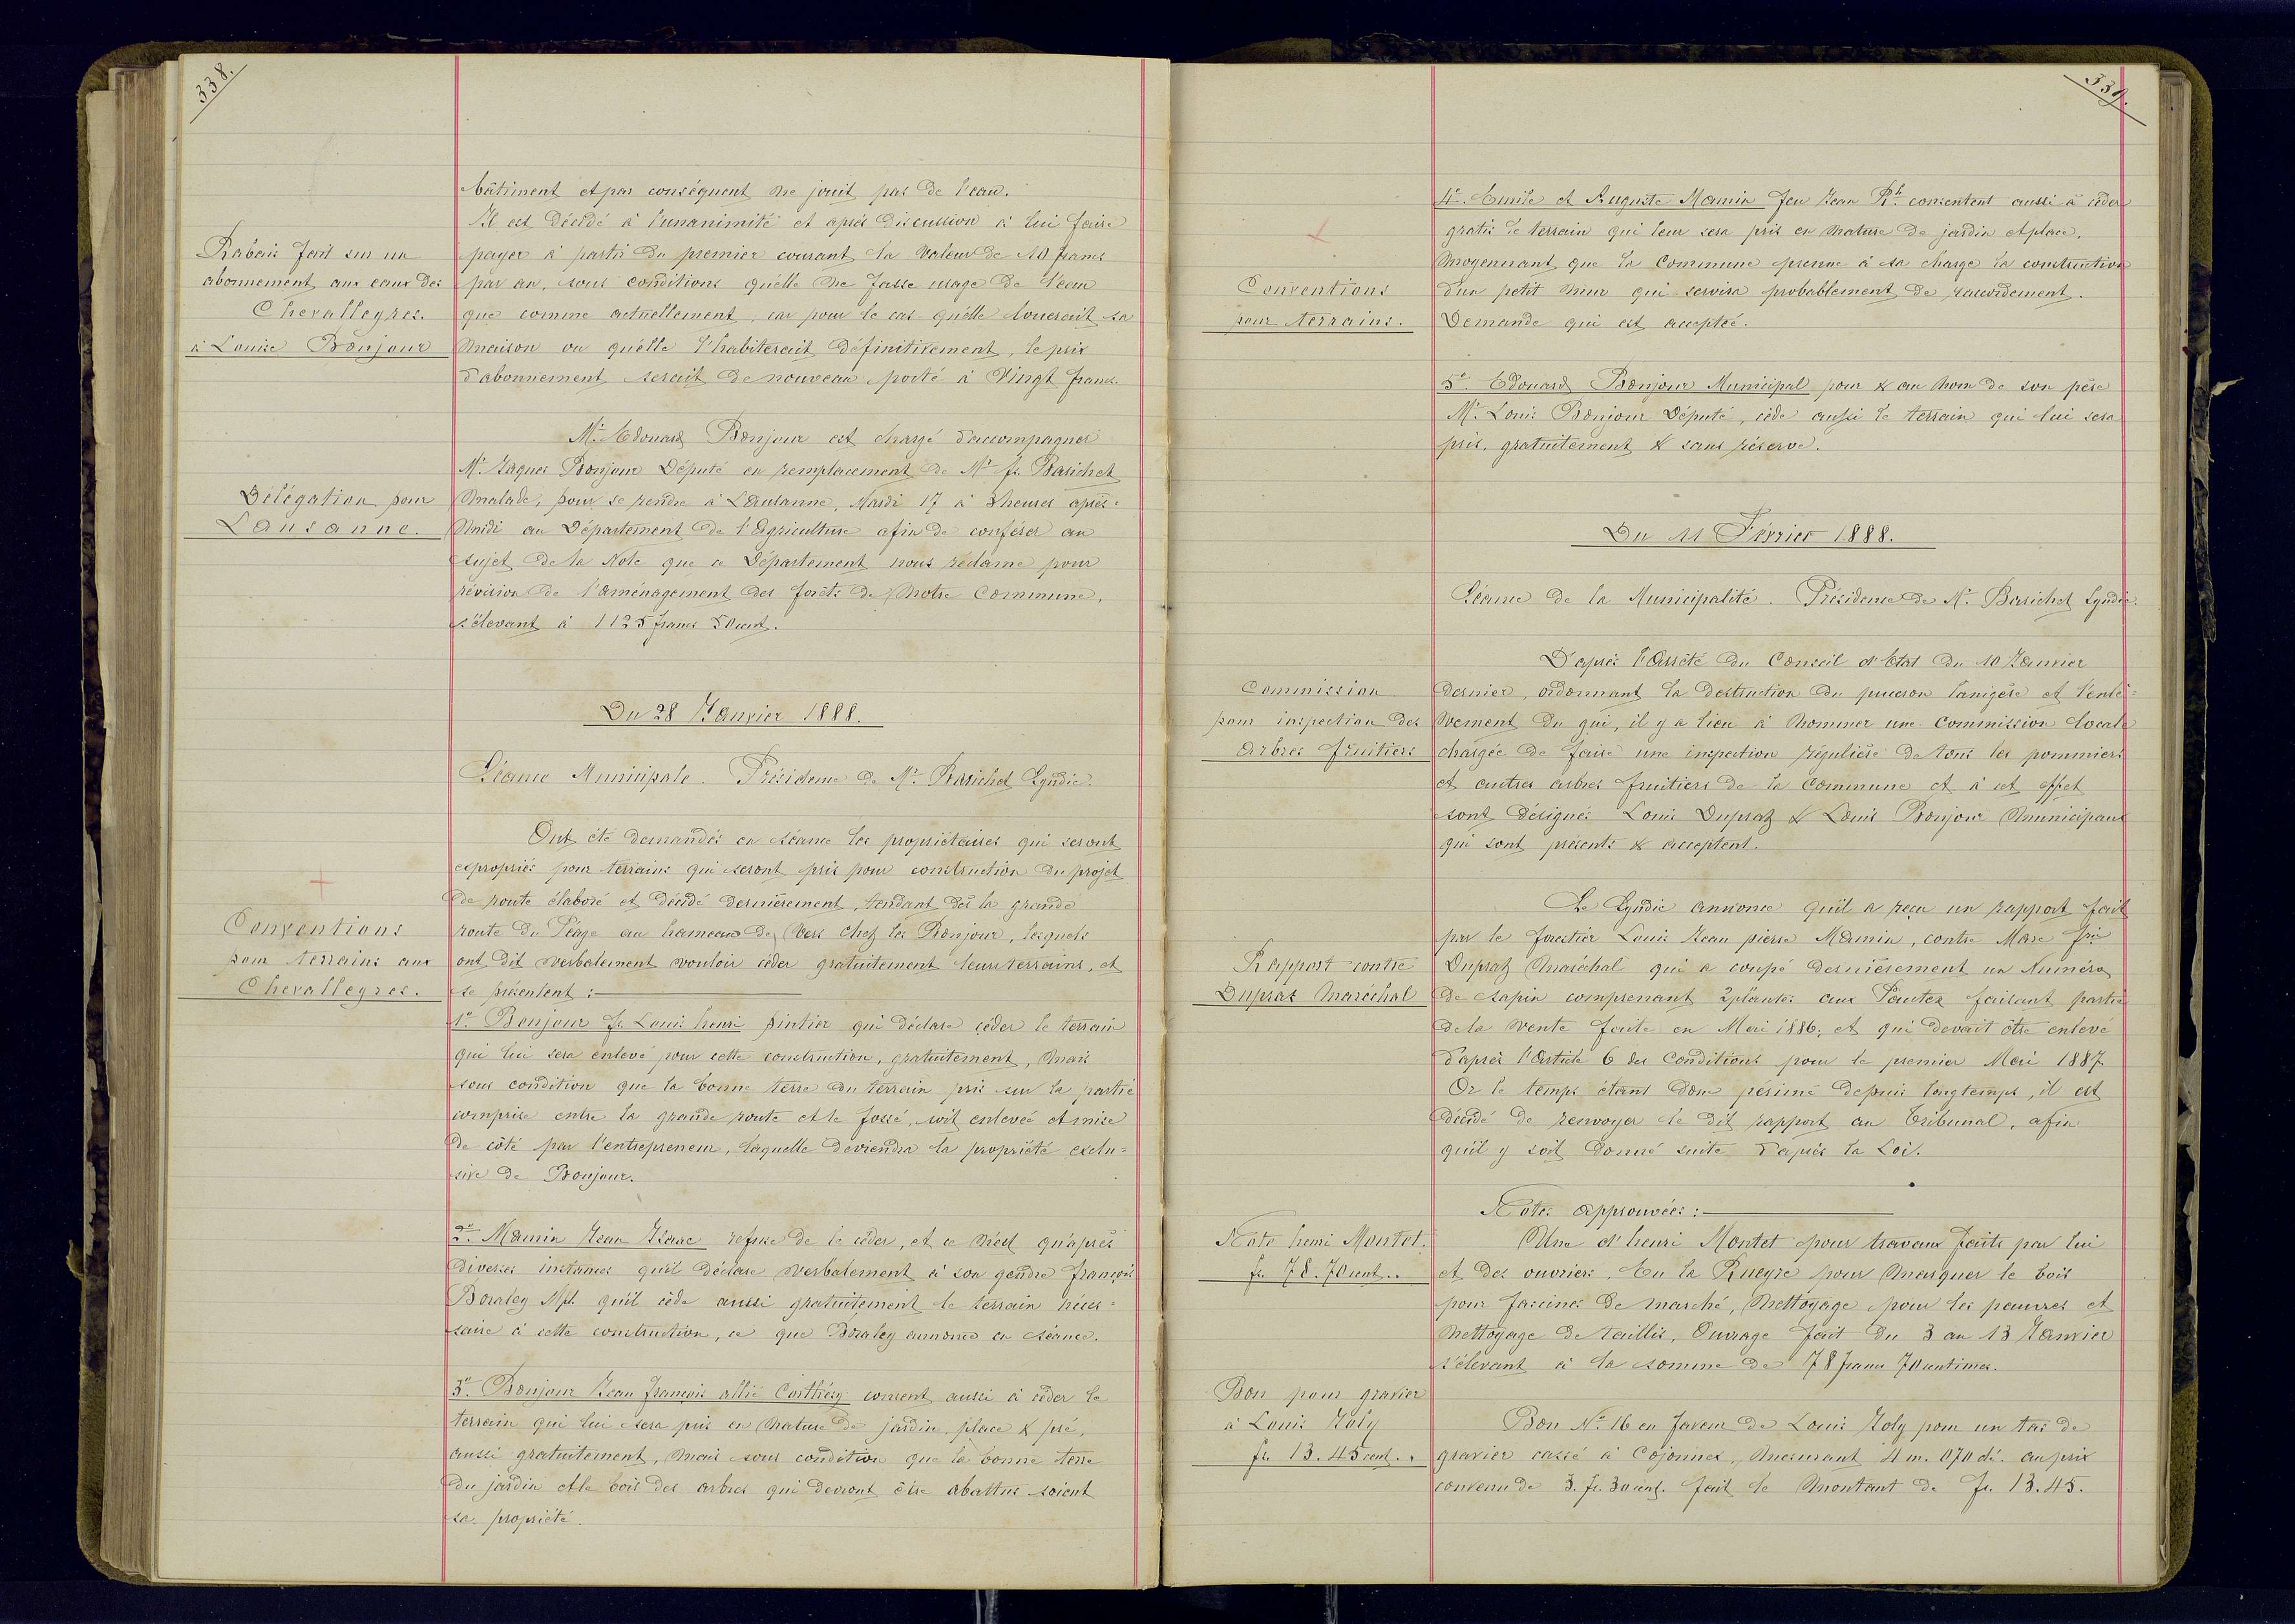 338.
bâtiment et par conséquent ne jouit pas de l'eau.
Il est décidé à l'unanimité et après discussion à lui faire
payer à partir du premier courant la valeur de 10 francs
par an, sous conditions qu'elle ne fasse usage de l'eau
que comme actuellement, car pour le cas qu'elle louerait sa
maison ou qu'elle l'habiterait définitivement, le prix
d'abonnement serait de nouveau porté à Vingt francs.
Rabais fait sur un
abonnement aux eaux des
Chevallegres.
à Louise Bonjour
Mr. Edouard Bonjour est chargé d'accompagner
Mr. Jaques Bonjour Député en remplacement de Mr. fs. Barichet
malade, pour se rendre à Lausanne, Mardi 17 à 3 heures après=
midi au Département de l'Agriculture afin de conférer au
sujet de la Note que ce Département nous réclame pour
révision de l'aménagement des forêts de Notre Commune,
s'élevant à 1125 francs 50 cent.
Délégation pour
Lausanne.
Du 28 Janvier 1888.
Séance Municipale. Présidence de Mr. Barichet Syndic.
Ont été demandés en séance les propriétaires qui seront
expropriés pour terrains qui seront pris pour construction du projet
de route élaboré et décidé dernièrement, tendant dès la grande
route du Péage au hameau de Vers chez les Bonjour, lesquels
ont dit verbalement vouloir céder gratuitement leurs terrains, et
se présentent :
Conventions
pour terrains aux
Chevallegres.
1º. Bonjour fs. Louis henri pintier qui déclare céder le terrain
qui lui sera enlevé pour cette construction, gratuitement, mais
sous condition que la bonne terre du terrain pris sur la partie
comprise entre la grande route et le fossé, soit enlevée et mise
de côté par l'entrepreneur, laquelle deviendra la propriété exclu=
sive de Bonjour.
2º. Mamin Jean Isaac refuse de le céder, et ce n'est qu'après
diverses instances qu'il déclare verbalement à son gendre françois
Boraley Mpl. qu'il cède aussi gratuitement le terrain néces=
saire à cette construction, ce que Boraley annonce en séance.
3º. Bonjour Jean françois allié Corthésy consent aussi à céder le
terrain qui lui sera pris en nature de jardin, place & pré,
aussi gratuitement, mais sous condition que la bonne terre
du jardin et le bois des arbres qui devront être abattus soient
sa propriété.
339.
4º. Emile et Auguste Mamin feu Jean Rh. consentent aussi à céder
gratis le terrain qui leur sera pris en nature de jardin et place,
moyennant que la Commune prenne à sa charge la construction
d'un petit mur qui servira probablement de raccordement.
Demande qui est acceptée.
Conventions
pour terrains.
5º. Edouard Bonjour Municipal pour & au nom de son père
Mr. Louis Bonjour Député, cède aussi le terrain qui lui sera
pris, gratuitement & sans réserve.
Du 11 Février 1888.
Séance de la Municipalité. Présidence de Mr. Barichet Syndic.
D'après l'Arrêté du Conseil d'Etat du 10 Janvier
dernier, ordonnant la destruction du puceron lanigère et l'enlè=
vement du gui, il y a lieu à nommer une Commission locale
chargée de faire une inspection régulière de tous les pommiers
et autres arbres fruitiers de la Commune et à cet effet
sont désignés Louis Dupraz & Louis Bonjour Municipaux
qui sont présents & acceptent.
Commission
pour inspection des
arbres fruitiers
Le Syndic annonce qu'il a reçu un rapport fait
par le forestier Louis Jean pierre Mamin, contre Marc fri
Dupraz Maréchal qui a coupé dernièrement un Numéro
de sapin comprenant 2 plantes aux Pautex faisant partie
de la vente faite en Mai 1886, et qui devait être enlevé
d'après l'Article 6 des Conditions pour le premier Mai 1887
Or le temps étant donc périmé depuis longtemps, il est
décidé de renvoyer le dit rapport au Tribunal, afin
qu'il y soit donné suite d'après la Loi.
Rapport contre
Dupraz Maréchal
Notes approuvées :
Une d'henri Montet pour travaux faits par lui
et des ouvriers. En la Rueyre pour marquer le bois
pour fascines de marché, nettoyage pour les pauvres et
nettoyage de taillis, Ouvrage fait du 3 au 13 Janvier
s'élevant à la somme de 78 francs 70 centimes.
Note henri Montet.
fr. 78.70 cent..
Bon Nº 16 en faveur de Louis Joly pour un tas de
gravier cassé à Cojonnex, mesurant 4 m. 070 dé. au prix
convenu de 3. fr. 30 cent. fait le montant de fr. 13.45.
Bon pour gravier
à Louis Joly
fr. 13.45 cent..